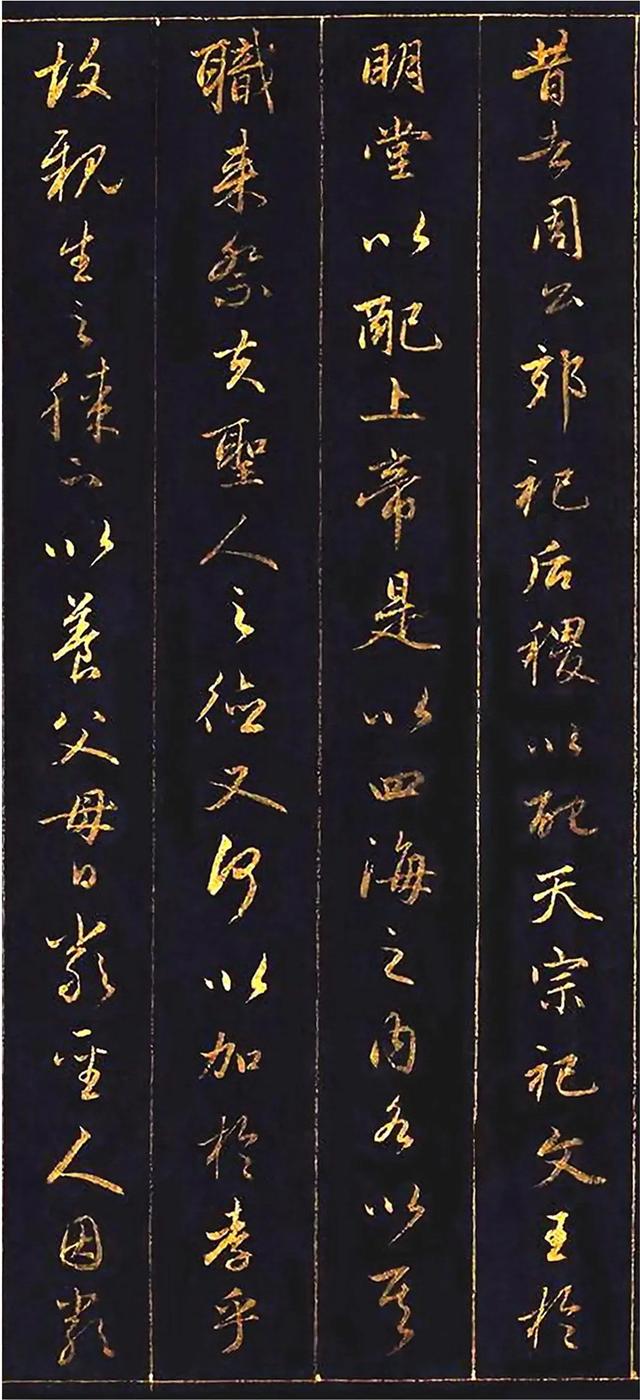 昔者周公郊祀后稷以配天宗祀文王於
明堂以配上帝是以四海之内各以其
職来祭夫聖人之德又何以加於孝乎
故親生之膝下以養父母日嚴聖人因嚴